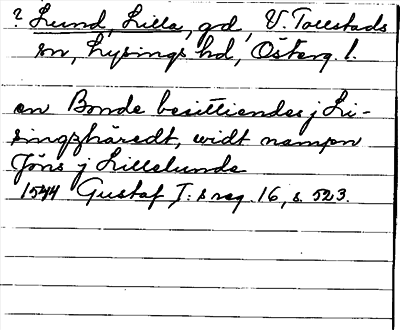 ? Lund, Lilla, gd, V. Tollstads
sn, Lysings hd, Österg. l.
en Bonde besittiendes j Li-
singzhäredt, widt nampn
Jöns j Lillelunda
1544 Gustaf I:s reg. 16, s. 523.